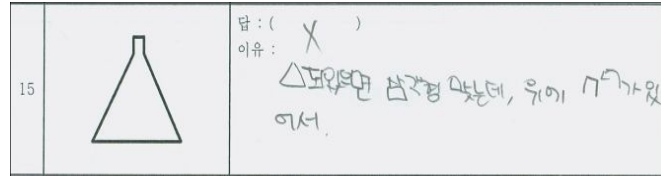 15
답 : ( X )
이유 :
△되있으면 삼각형 맞는데, 위에 ㄱ가 있
어서.